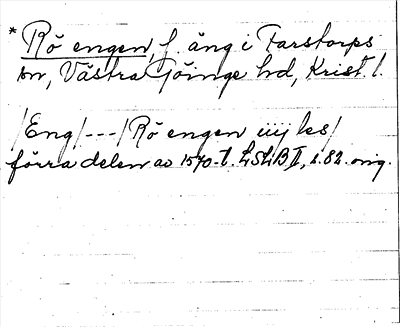 * Rö engen, f. äng i Farstorps
sn, Västra Göinge hd, Krist. l.
/Eng/---/Rö engen iiij lss/
förra delen av 1570-t. LSLB II, s. 82. orig.